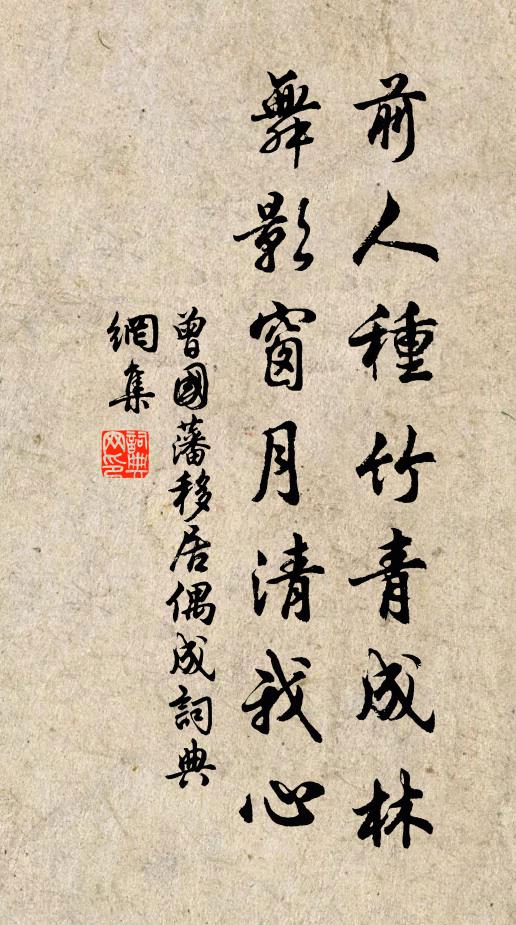 前人種竹青成林
舞影窗月清我心
曾國藩移居偶成詞典
網集
詞典
网印